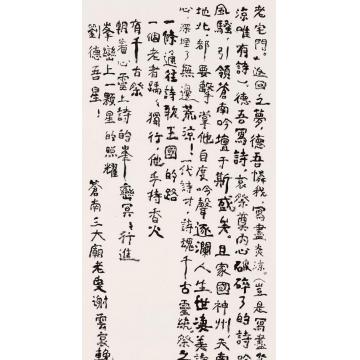 老宅門。返回之夢，德吾憐我，寫盡炎涼。（豈是寫盡
涼唯有詩）德吾寫詩，哀祭奠內心破碎了的詩
風騷，引領蒼南吟壇于斯盛矣。且家國神州天南
地北都要擊掌他自度吟聲逐瀾人生世淒美詩
心，深埋了無邊荒涼！一代詩才，詩魂千古靈統祭之
一條通往詩歌王國的路
一個老者踽踽獨行他手持香火
有千古祭
朝着心靈上詩的峯巒冥冥行進
峯巒上一顆星的照耀
劉德吾星！
蒼南三大廟老叟謝雲裳輓